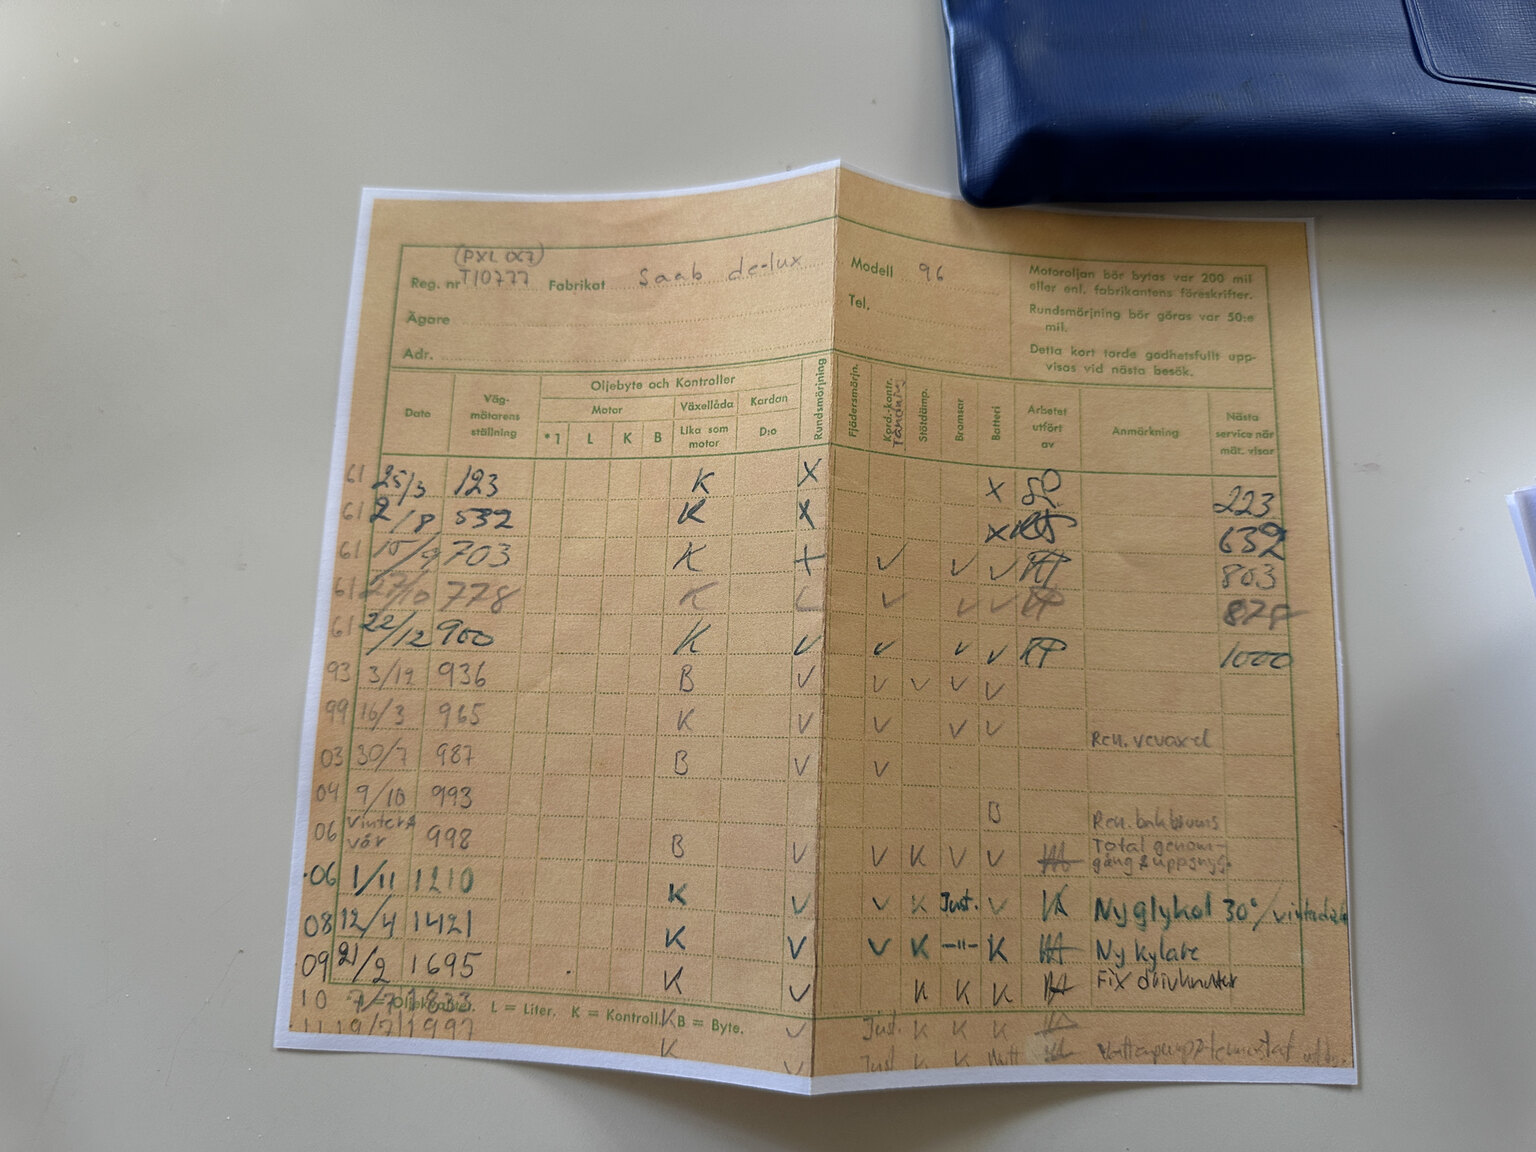 (PXL 067)
Reg. nr T10777 Fabrikat Saab de-lux Modell 96
Ägare Tel.
Adr.
Motoroljan bör bytas var 200 mil
eller enl. fabrikantens föreskrifter.
Rundsmörjning bör göras var 50:e
mil.
Detta kort torde godhetsfullt upp-
visas vid nästa besök.
Dato
Väg-
mätarens
ställning
Oljebyte och Kontroller
Motor Växellåda Kardan
*1 L K B Lika som
motor
D:o
Rundsmörjning
Fjädersmörjn.
Kprd.-kontr.
Tändning
Stötdämp.
Bromsar
Batteri
Arbetet
utfört
av
Anmärkning
Nästa
service när
mät. visar
61 25/3 123 K X X 223
61 2/8 532 K X X 632
61 15/9 703 K + ✓ ✓ ✓ 803
61 27/10 778 K ✓ ✓ ✓ 878
61 22/12 900 K ✓ ✓ ✓ ✓ 1000
93 3/12 936 B ✓ ✓ ✓ ✓ ✓
99 16/3 965 K ✓ ✓ ✓ ✓ Ren. vevaxel
03 30/7 987 B ✓ ✓
04 9/10 993 B Ren. bakbroms
06 Vinter &
vår 998 B ✓ ✓ K ✓ ✓ Total genom-
gång & uppsnygg.
06 1/11 1210 K ✓ ✓ K Just. ✓ Ny glykol 30°/
08 12/4 1421 K ✓ ✓ K -"- K Ny kylare
09 21/2 1695 K ✓ K K K Fix drivknutar
10 7/7 1833 K ✓ Just. K K K
L = Liter. K = Kontroll. B = Byte.
11 19/7 1997 K ✓ Just K K Nytt Vattenpump+termostat